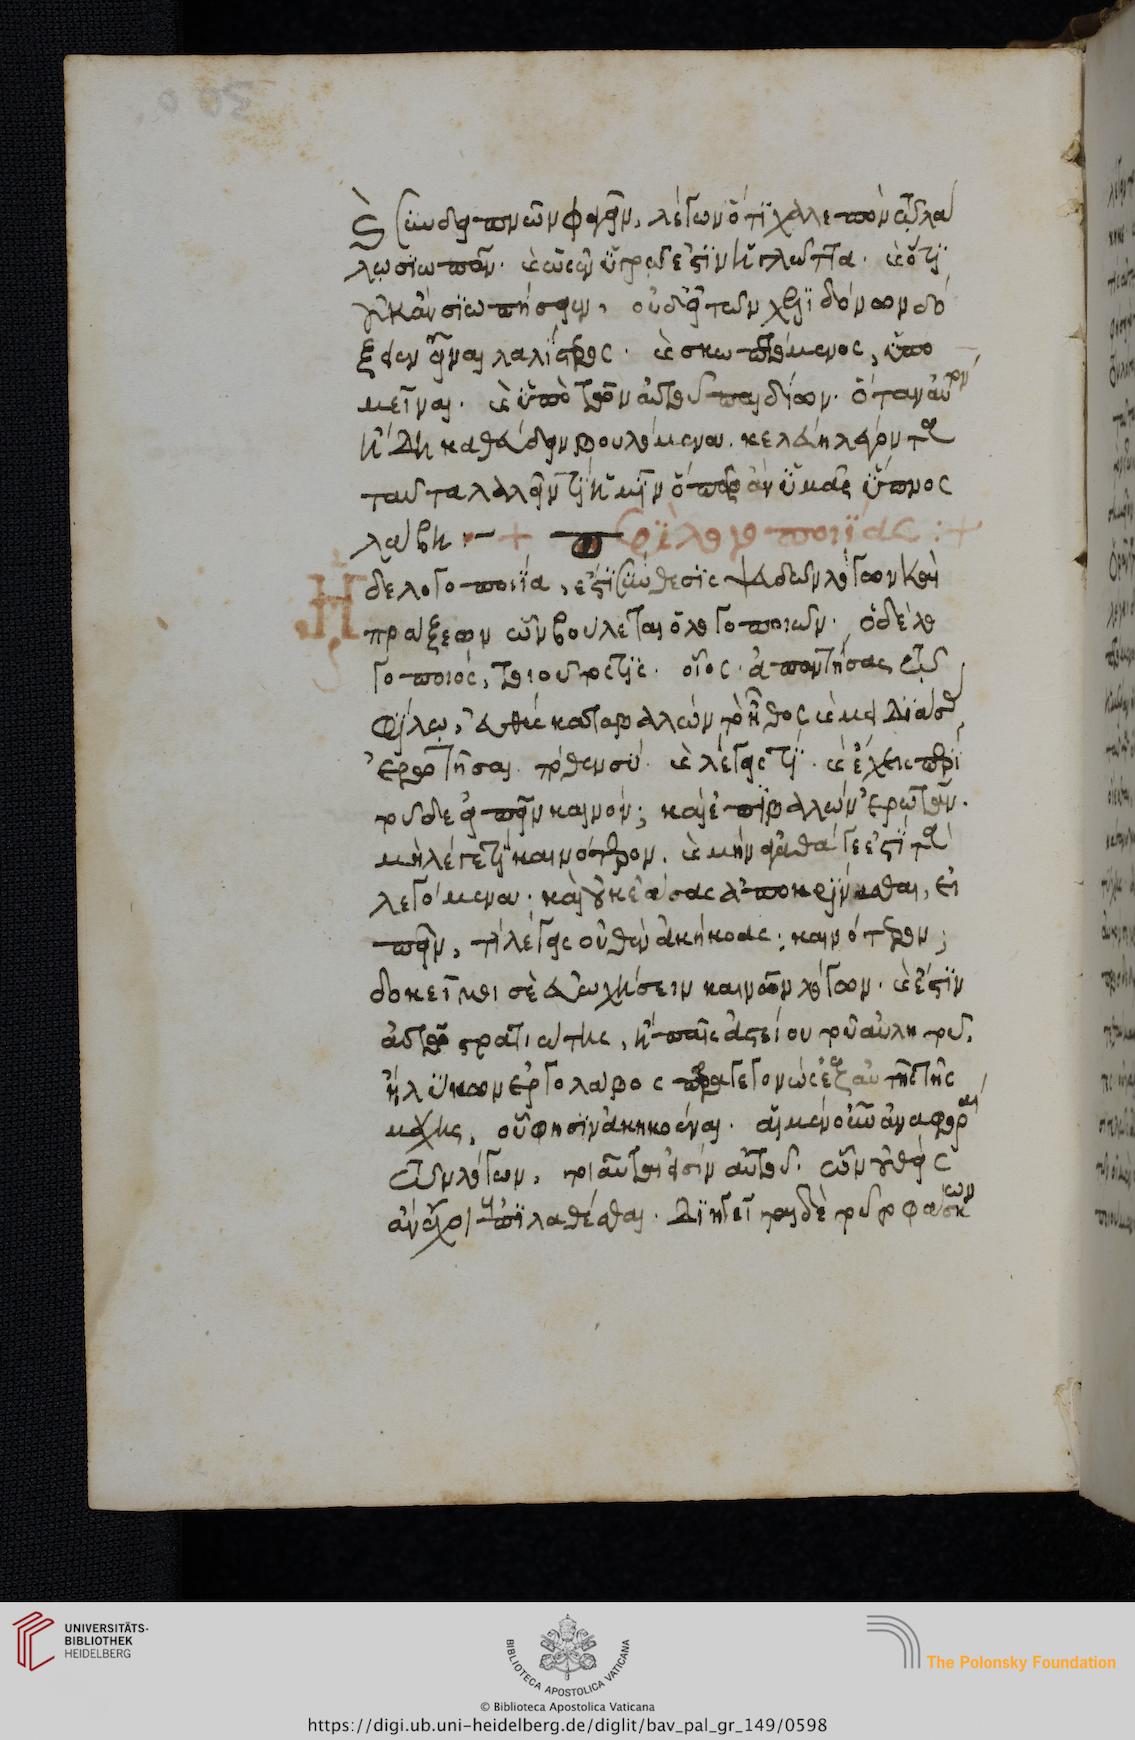 καὶ συνδειπνῶν φαγεῖν, λέγων ὅτι χαλεπὸν τῷ λά
λῳ σιωπᾶν. καὶ ὡς ἐν ὑγρῷ ἐστιν ἡ γλῶττα. καὶ ὅτι
οὐκ ἂν σιωπήσειεν, οὐδ' εἰ τῶν χελιδόνων δό
ξειεν εἶναι λαλίστερος. καὶ σκωπτόμενος, ὑπο
μεῖναι. καὶ ὑπὸ τῶν αὑτοῦ παιδίων. ὅταν αὐτὸν
ἤδη καθεύδειν βουλόμενα. κελεύῃ λέγοντα
ταῦτα λαλεῖν τι ἡμῖν ὅπως ἂν ἡμᾶς ὕπνος
λάβῃ :— + περὶ λογοποιίας : +
Ἡ
δὲ λογοποιία, ἐστὶ σύνθεσις ψευδῶν λόγων καὶ
πράξεων ὧν βούλεται ὁ λογοποιῶν. ὁ δὲ λο
γοποιός, τοιοῦτός τις. οἷος. ἀπαντήσας τῷ
φίλῳ, εὐθὺς καταβαλὼν τὸ ἦθος καὶ μειδιάσας
ἐρωτῆσαι. πόθεν σύ. καὶ λέγεις τί. καὶ ἔχεις περὶ
τοῦδε εἰπεῖν καινόν; καὶ ἐπιβαλὼν ἐρωτᾶν.
μὴ λέγεταί τι καινότερον. καὶ μὴν ἀγαθά γε ἐστὶ τὰ
λεγόμενα. καὶ οὐκ ἐάσας ἀποκρίνασθαι, εἰ
πεῖν, τί λέγεις οὐθὲν ἀκήκοας; καινότερον;
δοκεῖ μοι σὲ εὐωχήσειν καινῶν λόγων. καὶ ἔστιν
αὐτῷ στρατιώτης, ἢ παῖς ἀστείου τοῦ αὐλητοῦ,
ἢ λύκων ἐργολάβος παραγεγονὼς ἐξ αὐτῆς τῆς
μάχης, οὗ φησὶν ἀκηκοέναι. αἱ μὲν οὖν ἀναφοραὶ
τῶν λόγων, τοιαῦταί εἰσιν αὐτοῦ. ὧν οὐθεὶς
ἂν ἔχοι ἐπιλαθέσθαι. διηγεῖται δὲ τούτους φάσκων
300
UNIVERSITÄTS-
BIBLIOTHEK
HEIDELBERG
BIBLIOTECA APOSTOLICA VATICANA
The Polonsky Foundation
© Biblioteca Apostolica Vaticana
https://digi.ub.uni-heidelberg.de/diglit/bav_pal_gr_149/0598